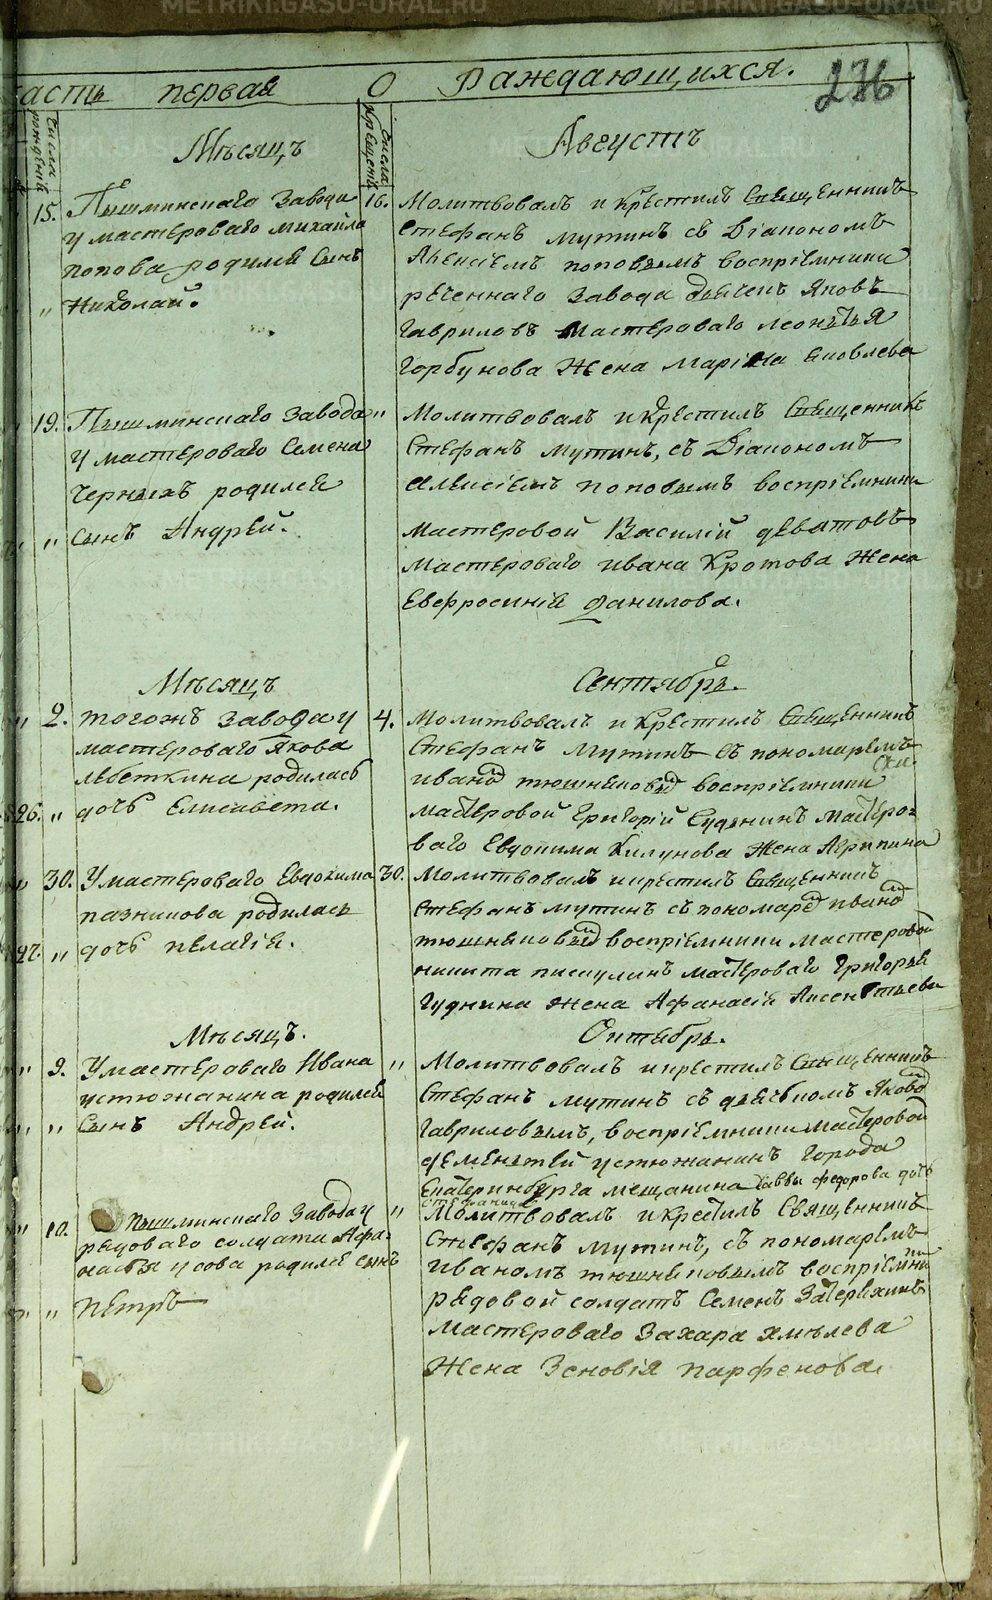 METRIKI.GASO-URAL.RU METRIKI.GASO-URAL.RU
часть первая О раждающихся. 236
числа рождения
Мѣсяцъ
числа крещенiя
Августъ
15. Пышминскаго Завода
у мастероваго михайла
попова родился сынъ
" Николай.
16. Молитвовалъ и крестилъ Священникъ
стефанъ мутинъ съ Дiакономъ
Алексiемъ поповымъ воспрiемники
реченнаго завода дьячекъ яковъ
гавриловъ мастероваго леонтья
горбунова жена марiна яковлева
19. Пышминскаго завода
у мастероваго Семена
черныхъ родился
" сынъ Андрей.
" Молитвовалъ и крестилъ Священникъ
стефанъ мутинъ, съ Дiакономъ
алексiемъ поповымъ воспрiемники
мастеровой Василiй девятовъ
мастероваго ивана Кротова жена
Евфросинiя данилова.
Мѣсяцъ
Сентябрь.
" 2. тогожъ завода у
мастероваго якова
лебеткина родилась
26. " дочь Елисавета.
4. Молитвовалъ и крестилъ Священникъ
Стефанъ мутинъ съ пономаремъ
иваном тюшняковым воспрiемники
мастеровой григорiй Гуднинъ мастеро-
ваго Евдокима Килунова жена Агрипина
" 30. У мастероваго Евдокима
пазникова родилась
27. " дочь пелагiя.
30. Молитвовалъ и крестилъ Священникъ
стефанъ мутинъ съ пономарем иваном
тюшняковым воспрiемники мастеровой
никита пискулинъ мастероваго григорья
гуднина жена Афанасiя Аксентьева
Мѣсяцъ.
Октябрь.
" 9. У мастероваго Ивана
устюжанина родился
" " Сынъ Андрей.
" Молитвовалъ и крестилъ Священникъ
стефанъ мутинъ съ дьячкомъ яковом
гавриловымъ, воспрiемники мастеровой
дементей устюжанинъ города
Екатеринбурга мещанина саввы федорова дочь
" 10. пышминскаго завода у
рядоваго солдата Афа-
насья усова родился сынъ
" " петръ
" Молитвовалъ и крестилъ Священникъ
Стефанъ мутинъ, съ пономаремъ
иваномъ тюшняковымъ воспрiемники
рядовой солдатъ Семенъ Затеряхинъ
мастероваго Захара хмѣлева
жена Зеновiя парфенова.
METRIKI.GASO-URAL.RU METRIKI.GASO-URAL.RU